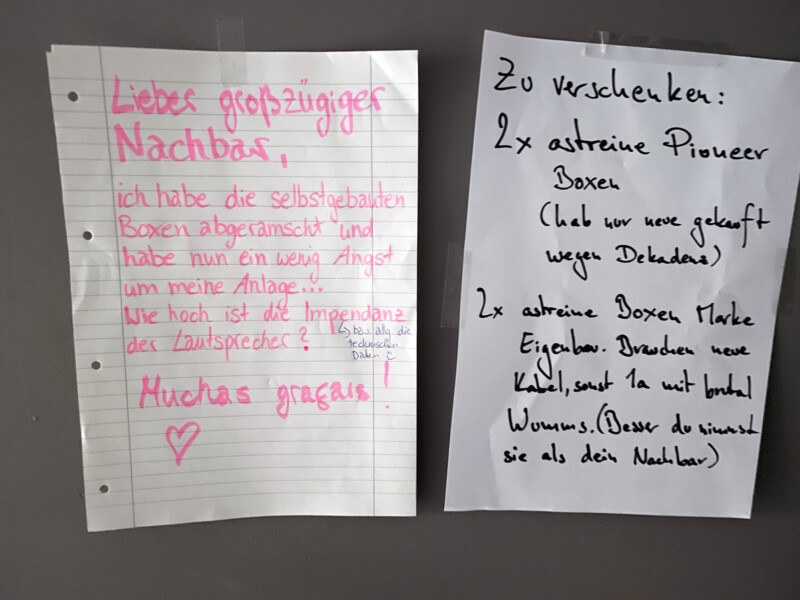 Lieber großzügiger
Nachbar,
ich habe die selbstgebauten
Boxen abgeramscht und
habe nun ein wenig Angst
um meine Anlage...
Wie hoch ist die Impendanz
der Lautsprecher?
↳ bzw. alg. die
technischen
Daten
Muchas graçais!
♡
Zu verschenken:
2x astreine Pioneer
Boxen
(hab nur neue gekauft
wegen Dekadenz)
2x astreine Boxen Marke
Eigenbau. Brauchen neue
Kabel, sonst 1a mit brutal
Wumms. (Besser du nimmst
sie als dein Nachbar)